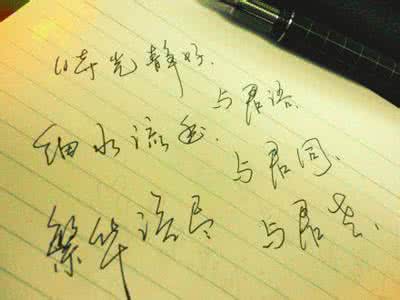 時光静好.
与君语.
细水流年.
与君同、
繁华落尽
与君老、